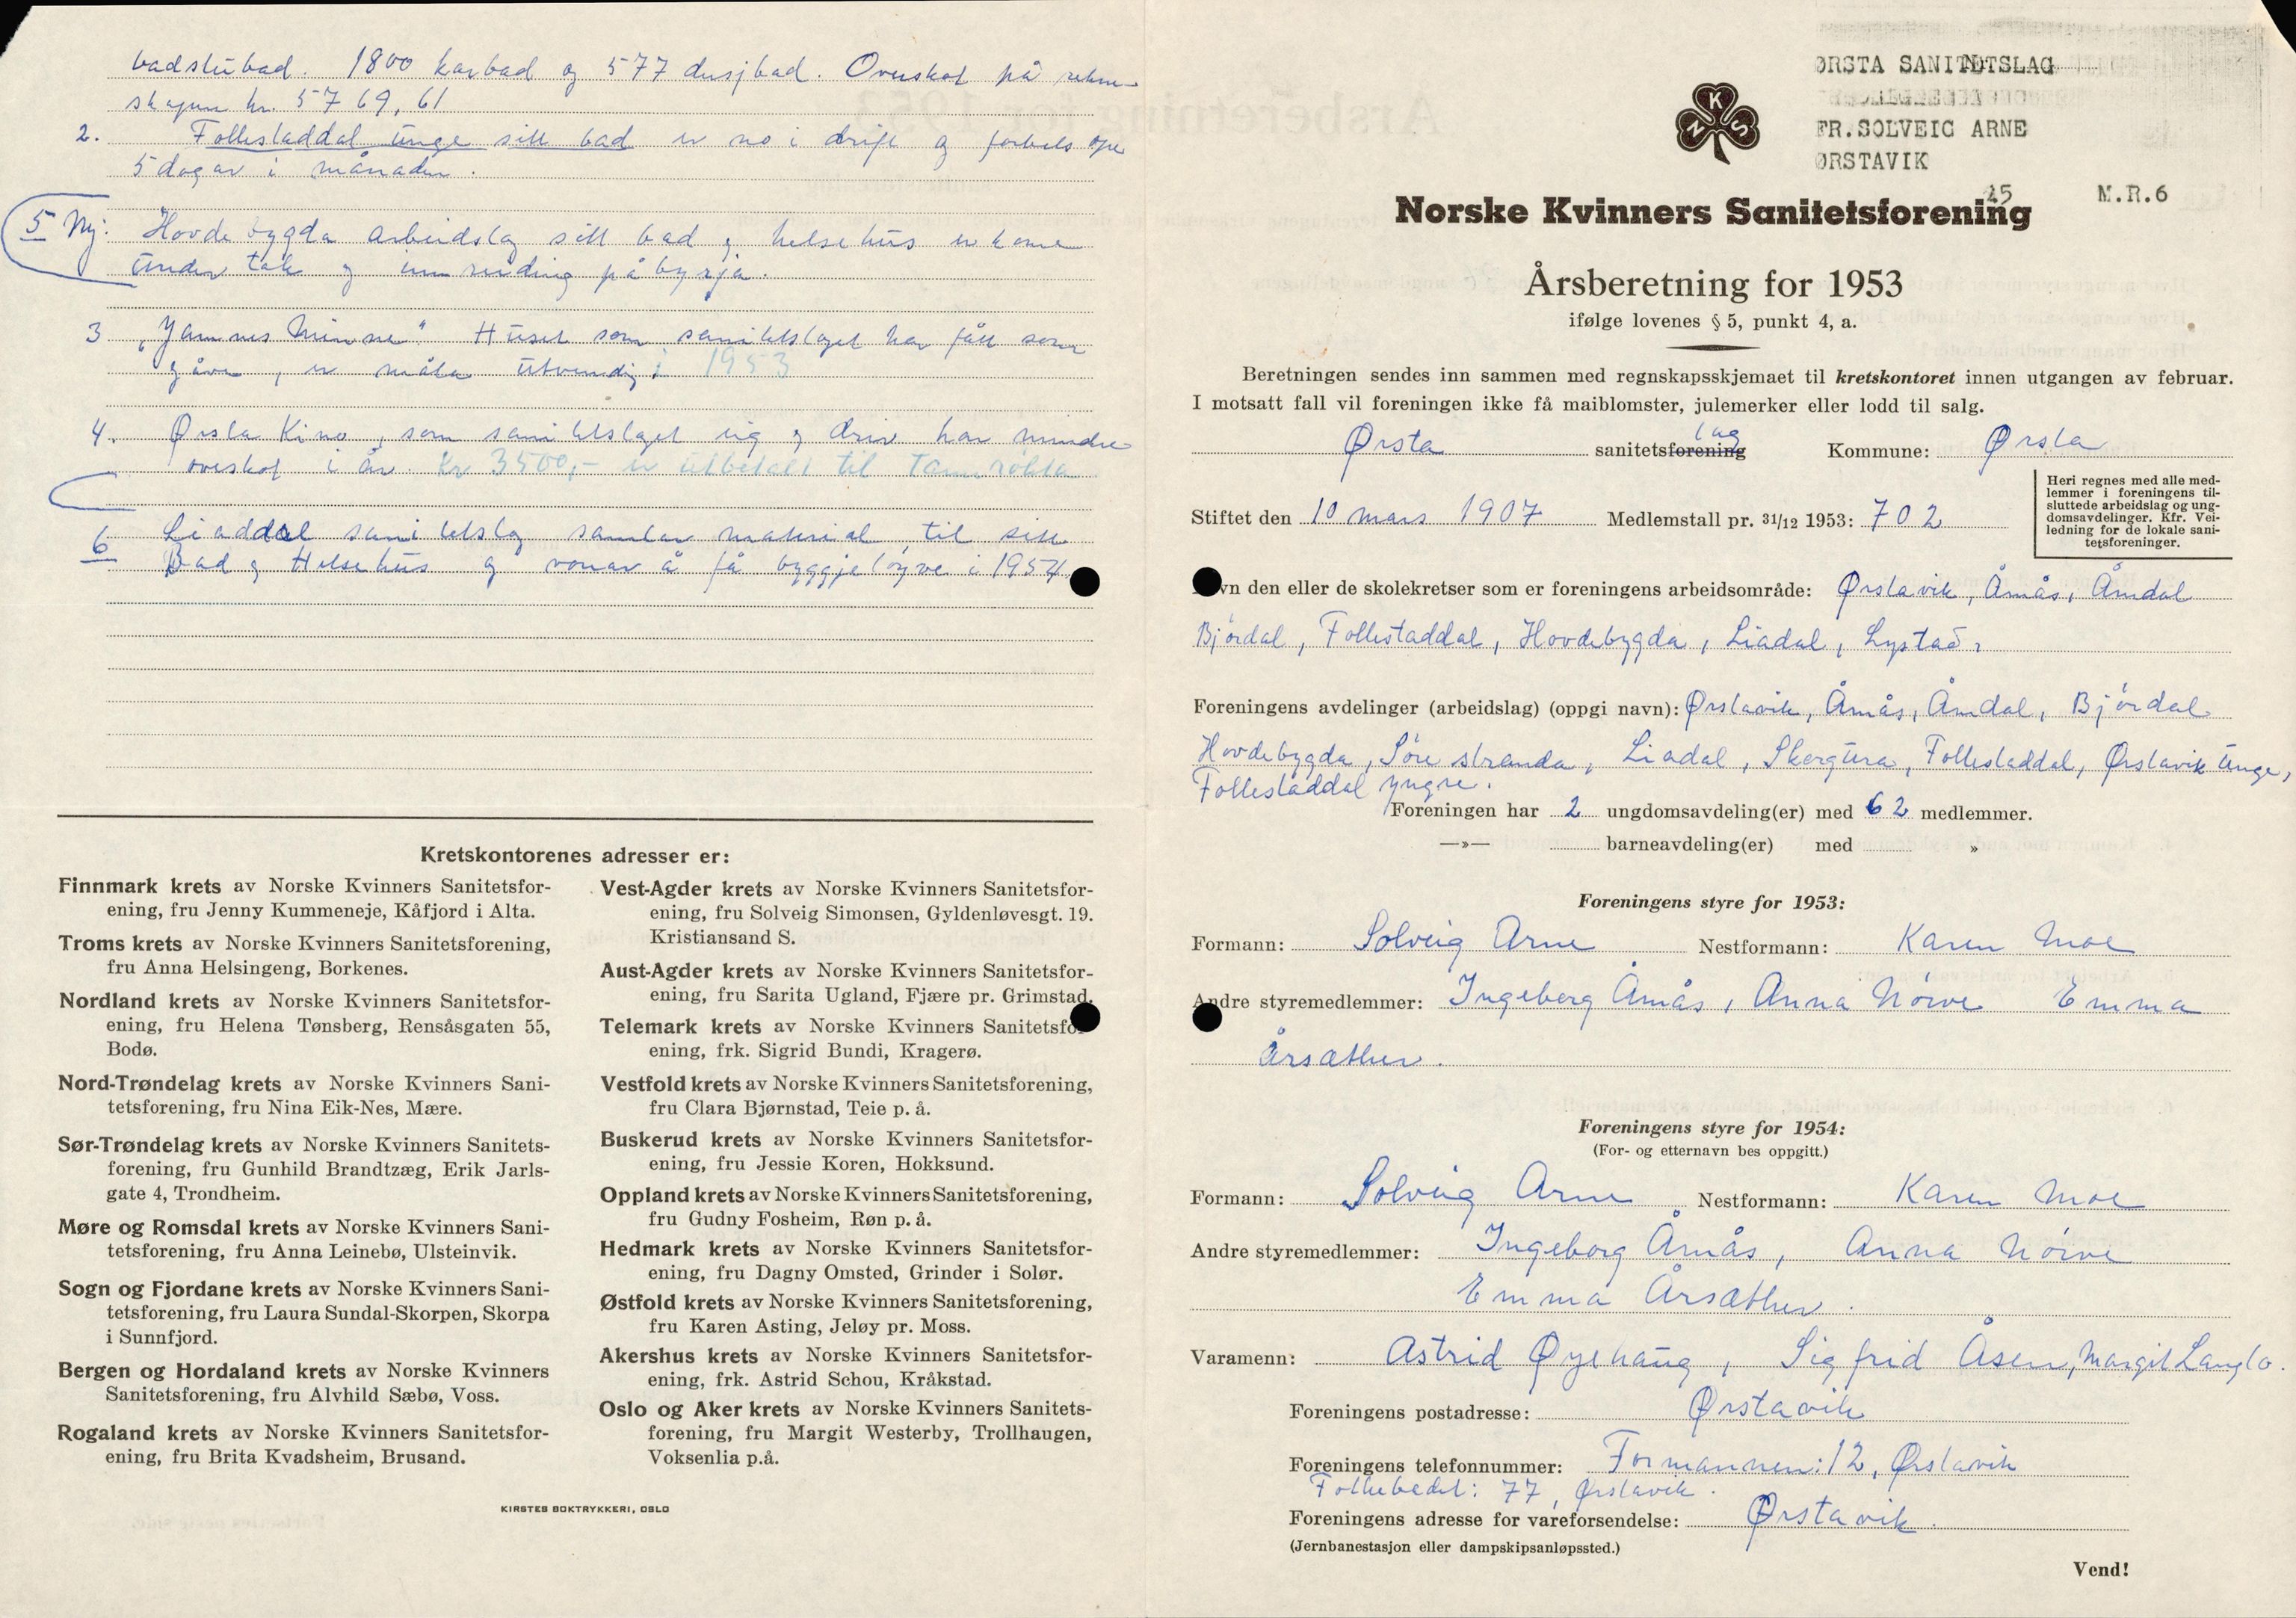 badstubad. 1800 karbad og 577 dusjbad. Overskot på rekne-
skapen kr. 5769,61
2. Follestaddal unge sitt bad er no i drift og forbels ope
5 dagar i månaden.
5 Ny: Hovdebygda arbeidslag sitt bad og helsehus er kome
under tak og innreiding påbyrja.
3 "Jamnes Minne" Huset som sanitetslaget har fått som
gåve, er måla utvendig i 1953
4. Ørsta Kino, som sanitetslaget eig og driv har mindre
overskot i år. Kr 3500,- er utbetalt til Tannrøkta
6 Liaddal sanitetslag samlar material til sitt
Bad og Helsehus og vonar å få byggjeløyve i 1954.
Kretskontorenes adresser er:
Finnmark krets av Norske Kvinners Sanitetsfor-
ening, fru Jenny Kummeneje, Kåfjord i Alta.
Troms krets av Norske Kvinners Sanitetsforening,
fru Anna Helsingeng, Borkenes.
Nordland krets av Norske Kvinners Sanitetsfor-
ening, fru Helena Tønsberg, Rensåsgaten 55,
Bodø.
Nord-Trøndelag krets av Norske Kvinners Sani-
tetsforening, fru Nina Eik-Nes, Mære.
Sør-Trøndelag krets av Norske Kvinners Sanitets-
forening, fru Gunhild Brandtzæg, Erik Jarls-
gate 4, Trondheim.
Møre og Romsdal krets av Norske Kvinners Sani-
tetsforening, fru Anna Leinebø, Ulsteinvik.
Sogn og Fjordane krets av Norske Kvinners Sani-
tetsforening, fru Laura Sundal-Skorpen, Skorpa
i Sunnfjord.
Bergen og Hordaland krets av Norske Kvinners
Sanitetsforening, fru Alvhild Sæbø, Voss.
Rogaland krets av Norske Kvinners Sanitetsfor-
ening, fru Brita Kvadsheim, Brusand.
Vest-Agder krets av Norske Kvinners Sanitetsfor-
ening, fru Solveig Simonsen, Gyldenløvesgt. 19.
Kristiansand S.
Aust-Agder krets av Norske Kvinners Sanitetsfor-
ening, fru Sarita Ugland, Fjære pr. Grimstad.
Telemark krets av Norske Kvinners Sanitetsfor-
ening, frk. Sigrid Bundi, Kragerø.
Vestfold krets av Norske Kvinners Sanitetsforening,
fru Clara Bjørnstad, Teie p. å.
Buskerud krets av Norske Kvinners Sanitetsfor-
ening, fru Jessie Koren, Hokksund.
Oppland krets av Norske Kvinners Sanitetsforening,
fru Gudny Fosheim, Røn p. å.
Hedmark krets av Norske Kvinners Sanitetsfor-
ening, fru Dagny Omsted, Grinder i Solør.
Østfold krets av Norske Kvinners Sanitetsforening,
fru Karen Asting, Jeløy pr. Moss.
Akershus krets av Norske Kvinners Sanitetsfor-
ening, frk. Astrid Schou, Kråkstad.
Oslo og Aker krets av Norske Kvinners Sanitets-
forening, fru Margit Westerby, Trollhaugen,
Voksenlia p.å.
KIRSTES BOKTRYKKERI, OSLO
ØRSTA SANITETSLAG
FR.SOLVEIG ARNE
ØRSTAVIK
KNS
15 M.R.6
Norske Kvinners Sanitetsforening
Årsberetning for 1953
ifølge lovenes § 5, punkt 4, a.
Beretningen sendes inn sammen med regnskapsskjemaet til kretskontoret innen utgangen av februar.
I motsatt fall vil foreningen ikke få maiblomster, julemerker eller lodd til salg.
Ørsta sanitetsforening lag Kommune: Ørsta
Stiftet den 10 mars 1907 Medlemstall pr. 31/12 1953: 702
Heri regnes med alle med-
lemmer i foreningens til-
sluttede arbeidslag og ung-
domsavdelinger. Kfr. Vei-
ledning for de lokale sani-
tetsforeninger.
vn den eller de skolekretser som er foreningens arbeidsområde: Ørstavik, Åmås, Åmdal
Bjørdal, Follestaddal, Hovdebygda, Liadal, Lystad.
Foreningens avdelinger (arbeidslag) (oppgi navn): Ørstavik, Åmås, Åmdal, Bjørdal
Hovdebygda, Søre stranda, Liadal, Skorgura, Follestaddal, Ørstavik Unge,
Follestaddal yngre.
Foreningen har 2 ungdomsavdeling(er) med 62 medlemmer.
—»— barneavdeling(er) med »
Foreningens styre for 1953:
Formann: Solveig Arne Nestformann: Karen Moe
Andre styremedlemmer: Ingeborg Åmås, Anna Nørve Emma
Årsæther.
Foreningens styre for 1954:
(For- og etternavn bes oppgitt.)
Formann: Solveig Arne Nestformann: Karen Moe
Andre styremedlemmer: Ingeborg Åmås, Anna Nørve
Emma Årsæther.
Varamenn: Astrid Øyehaug, Sigfrid Åsen, Margit Langlo.
Foreningens postadresse: Ørstavik
Foreningens telefonnummer: Formannen: 12, Ørstavik
Folkebadet: 77, Ørstavik.
Foreningens adresse for vareforsendelse: Ørstavik.
(Jernbanestasjon eller dampskipsanløpssted.)
Vend!